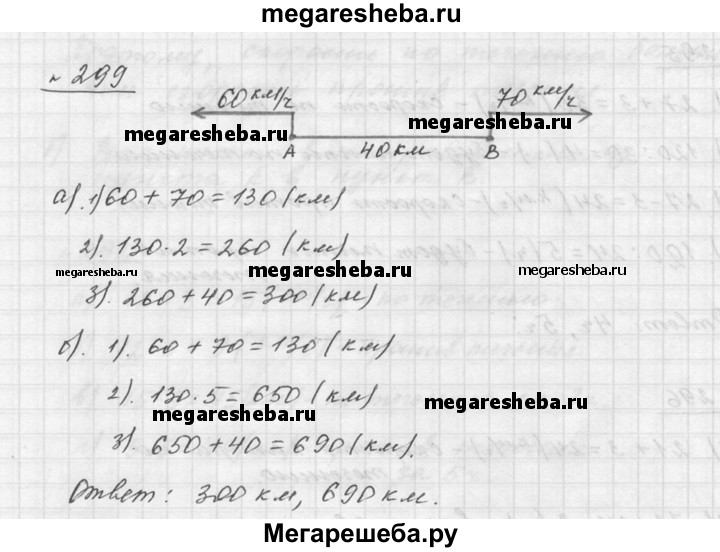 megaresheba.ru
№ 299
60 км/ч 70 км/ч
megaresheba.ru megaresheba.ru
A 40 км B
а). 1) 60 + 70 = 130 (км)
2). 130·2 = 260 (км)
megaresheba.ru megaresheba.ru megaresheba.ru
3). 260 + 40 = 300 (км)
б). 1). 60 + 70 = 130 (км)
2). 130·5 = 650 (км)
megaresheba.ru megaresheba.ru
3). 650 + 40 = 690 (км).
Ответ: 300 км, 690 км.
Мегарешеба.ру